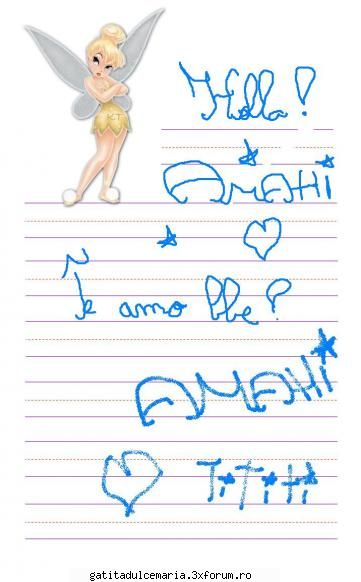 Holla!
AMAHI
Te amo bbe!
AMAHI
TiTiTi
gatitadulcemaria.3xforum.ro